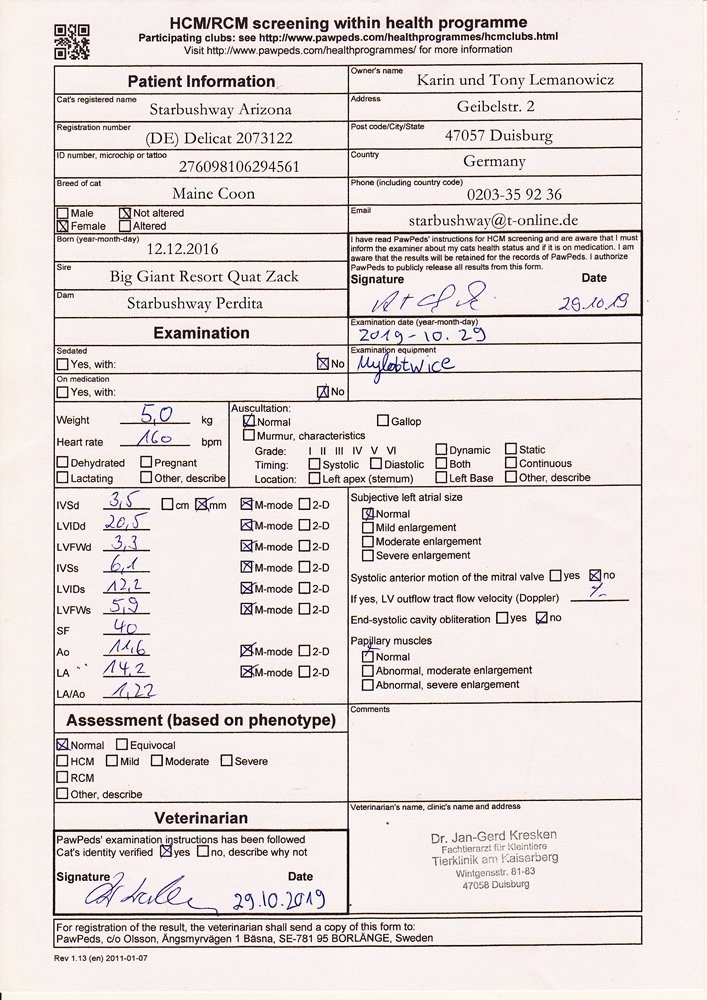 HCM/RCM screening within health programme
Participating clubs: see http://www.pawpeds.com/healthprogrammes/hcmclubs.html
Visit http://www.pawpeds.com/healthprogrammes/ for more information
Patient Information
Cat's registered name
Starbushway Arizona
Registration number
(DE) Delicat 2073122
ID number, microchip or tattoo
276098106294561
Breed of cat
Maine Coon
Male Not altered
Female Altered
Born (year-month-day)
12.12.2016
Sire
Big Giant Resort Quat Zack
Dam
Starbushway Perdita
Owner's name
Karin und Tony Lemanowicz
Address
Geibelstr. 2
Post code/City/State
47057 Duisburg
Country
Germany
Phone (including country code)
0203-35 92 36
Email
starbushway@t-online.de
I have read PawPeds' instructions for HCM screening and are aware that I must
inform the examiner about my cats health status and if it is on medication. I am
aware that the results will be retained for the records of PawPeds. I authorize
PawPeds to publicly release all results from this form.
Signature Date
29.10.19
Examination
Sedated
Yes, with: No
On medication
Yes, with: No
Examination date (year-month-day)
2019-10.29
Examination equipment
Weight 5,0 kg
Heart rate 160 bpm
Dehydrated Pregnant
Lactating Other, describe
Auscultation:
Normal Gallop
Murmur, characteristics
Grade: I II III IV V VI Dynamic Static
Timing: Systolic Diastolic Both Continuous
Location: Left apex (sternum) Left Base Other, describe
IVSd 3,5 cm mm M-mode 2-D
LVIDd 20,5 M-mode 2-D
LVFWd 3,3 M-mode 2-D
IVSs 6,1 M-mode 2-D
LVIDs 12,2 M-mode 2-D
LVFWs 5,9 M-mode 2-D
SF 40
Ao 11,6 M-mode 2-D
LA 14,2 M-mode 2-D
LA/Ao 1,22
Subjective left atrial size
Normal
Mild enlargement
Moderate enlargement
Severe enlargement
Systolic anterior motion of the mitral valve yes no
If yes, LV outflow tract flow velocity (Doppler)
End-systolic cavity obliteration yes no
Papillary muscles
Normal
Abnormal, moderate enlargement
Abnormal, severe enlargement
Assessment (based on phenotype)
Normal Equivocal
HCM Mild Moderate Severe
RCM
Other, describe
Comments
Veterinarian
PawPeds' examination instructions has been followed
Cat's identity verified yes no, describe why not
Signature Date
29.10.2019
Veterinarian's name, clinic's name and address
Dr. Jan-Gerd Kresken
Fachtierarzt für Kleintiere
Tierklinik am Kaiserberg
Wintgensstr. 81-83
47058 Duisburg
For registration of the result, the veterinarian shall send a copy of this form to:
PawPeds, c/o Olsson, Ängsmyrvägen 1 Bäsna, SE-781 95 BORLÄNGE, Sweden
Rev 1.13 (en) 2011-01-07